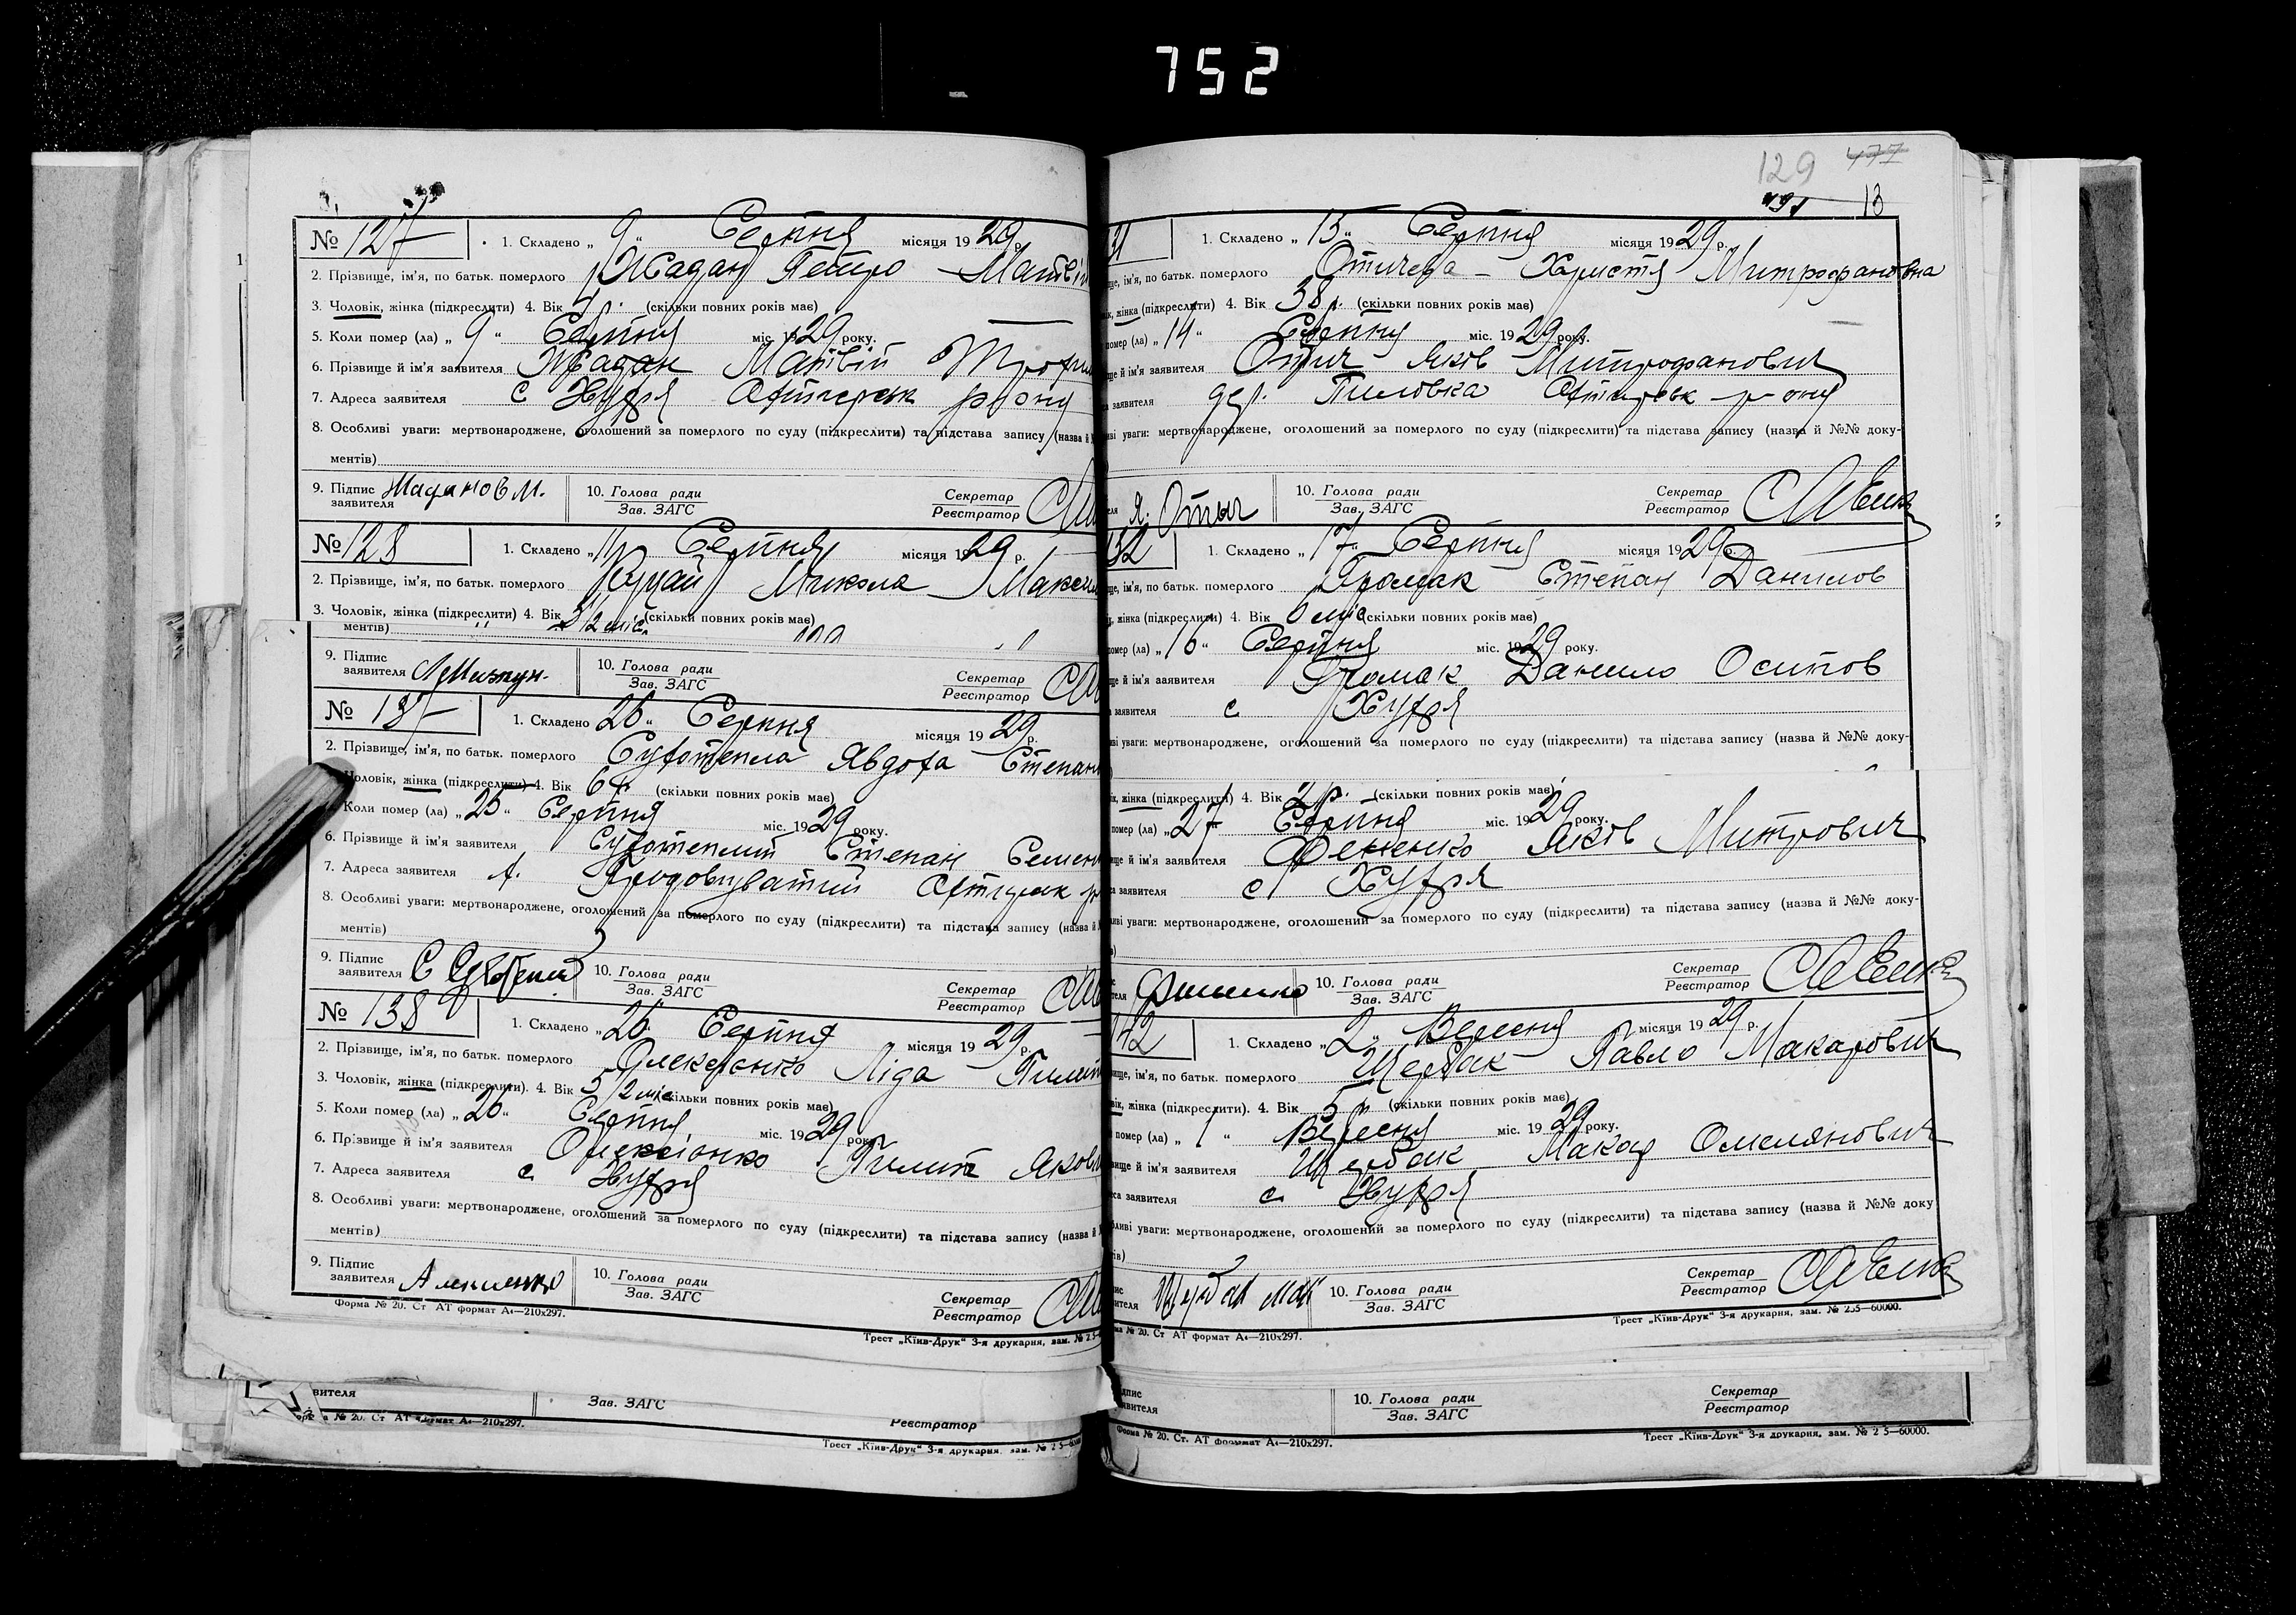 752
129 477
13
№ 127
1. Складено „ 9 “ Серпня місяця 1929 р.
2. Прізвище, ім'я, по батьк. померлого Жадан Петро Матвій
3. Чоловік, жінка (підкреслити) 4. Вік р. (скільки повних років має)
5. Коли помер (ла) „ 9 “ Серпня міс. 1929 року.
6. Прізвище й ім'я заявителя Жадан Матвій Трофим
7. Адреса заявителя с Хухря Охтирськ району
8. Особливі уваги: мертвонароджене, оголошений за померлого по суду (підкреслити) та підстава запису (назва й
ментів)
9. Підпис заявителя Жаданов М. 10. Голова ради Зав. ЗАГС Секретар Реєстратор
№ 128
1. Складено „ 11 “ Серпня місяця 1929 р.
2. Прізвище, ім'я, по батьк. померлого Микола Макси
3. Чоловік, жінка (підкреслити) 4. Вік 3/12 міс. (скільки повних років має)
ментів)
9. Підпис заявителя 10. Голова ради Зав. ЗАГС Секретар Реєстратор
№ 137
1. Складено 26 “ Серпня місяця 1929 р.
2. Прізвище, ім'я, по батьк. померлого Сухотепла Явдоха Степан
Чоловік, жінка (підкреслити) 4. Вік (скільки повних років має)
Коли помер (ла) „ 25 “ Серпня міс. 1929 року.
6. Прізвище й ім'я заявителя Сухотеплий Степан Семен
7. Адреса заявителя х. Грядовуватий
8. Особливі уваги: мертвонароджене, оголошений за померлого по суду (підкреслити) та підстава запису (назва й
ментів)
9. Підпис заявителя 10. Голова ради Зав. ЗАГС Секретар Реєстратор
№ 138
1. Складено „ 26 “ Серпня місяця 1929 р.
2. Прізвище, ім'я, по батьк. померлого Олексієнко Ліда Пилип
3. Чоловік, жінка (підкреслити). 4. Вік 5/12 міс (скільки повних років має)
5. Коли помер (ла) „ 26 “ Серпня міс. 1929 року.
6. Прізвище й ім'я заявителя Олексієнко Пилип Яков
7. Адреса заявителя с Хухря
8. Особливі уваги: мертвонароджене, оголошений за померлого по суду (підкреслити) та підстава запису (назва й
ментів)
9. Підпис заявителя 10. Голова ради Зав. ЗАГС Секретар Реєстратор
Форма № 20. Ст АТ формат А4—210x297.
Трест „Київ-Друк“ 3-я друкарня, зам. №
вителя Зав. ЗАГС Реєстратор
№ 20. Ст АТ формат А4—210x297.
Трест „Київ-Друк“ 3-я друкарня, зам. №
31
1. Складено „ 15 “ Серпня місяця 1929 р.
ще, ім'я, по батьк. померлого Отичева - Христя Митрофановна
жінка (підкреслити) 4. Вік 38 р. (скільки повних років має)
помер (ла) „ 14 “ Серпня міс. 1929 року.
ще й ім'я заявителя Отич Яків Митрофанович
заявителя дер. Пиловка Охтирськ р-ону
ві уваги: мертвонароджене, оголошений за померлого по суду (підкреслити) та підстава запису (назва й №№ доку-
Я. Отыч 10. Голова ради Зав. ЗАГС Секретар Реєстратор
32
1. Складено „ 17 “ Серпня місяця 1929 р.
ще, ім'я, по батьк. померлого Громак Степан Данилов
жінка (підкреслити) 4. Вік 0 міс (скільки повних років має)
помер (ла) „ 16 “ Серпня міс. 1929 року.
ще й ім'я заявителя Громак Данило Осипов
заявителя с Хухря
ві уваги: мертвонароджене, оголошений за померлого по суду (підкреслити) та підстава запису (назва й №№ доку-
жінка (підкреслити) 4. Вік 2 р. (скільки повних років має)
помер (ла) „ 27 “ Серпня міс. 1929 року.
ще й ім'я заявителя Фененко Яків Митрович
заявителя с Хухря
ві уваги: мертвонароджене, оголошений за померлого по суду (підкреслити) та підстава запису (назва й №№ доку-
10. Голова ради Зав. ЗАГС Секретар Реєстратор
42
1. Складено „ 2 “ Вересня місяця 1929 р.
ище, ім'я, по батьк. померлого Щербак Павло Макарович
жінка (підкреслити). 4. Вік 5 р (скільки повних років має)
помер (ла) „ 1 “ Вересня міс. 1929 року.
ище й ім'я заявителя Щербак Макар Омелянович
са заявителя с Хухря
ливі уваги: мертвонароджене, оголошений за померлого по суду (підкреслити) та підстава запису (назва й №№ доку
ів)
Щербак Мак 10. Голова ради Зав. ЗАГС Секретар Реєстратор
№ 20. Ст АТ формат А4—210x297.
Трест „Київ-Друк“ 3-я друкарня, зам. № 235—60000.
дпис явителя 10. Голова ради Зав. ЗАГС Секретар Реєстратор
Форма № 20. Ст. АТ формат А4—210x297.
Трест „Київ-Друк“ 3-я друкарня, зам. № 2 5—60000.